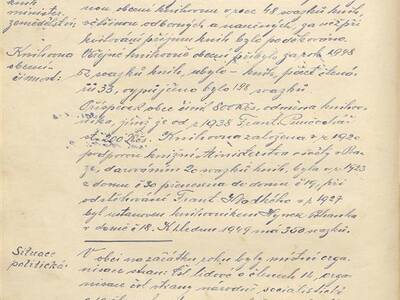 knih
minister.
zemědělství.
nou obcní knihovnu v roce 48 svazků knih,
většinou odborných a naučných, za něž při
knihování příjmu knih bylo poděkováno.
Knihovna
obecní
čís. mod.:
Veřejné knihovně obecní přibylo za rok 1948
52 svazků knih, ubylo - knih, počet čtená-
řů 33, vypůjčeno bylo 198 svazků
Příspěvek obce činil 800 Kčs, odměna knihov-
níka, jímž je od r. 1938 Frant.
200 Kčs. Knihovna založena v r. 1920
podporou knižní Ministerstva v Pra-
ze, darováním 20 svazků knih, byla v r. 1923
z domu č 30 přenesena do domu č 19, při
odstěhování Frant. Hladkého v r. 1927
byl ustanoven knihovníkem Hynek
v domě č 18. K lednu 1949 má 360 svazků.
Situace
politická:
V obci na začátku roku byly místní orga-
nisace stran: Čsl lidové o členech 12, orga-
nisace čsl strany národně socialistické